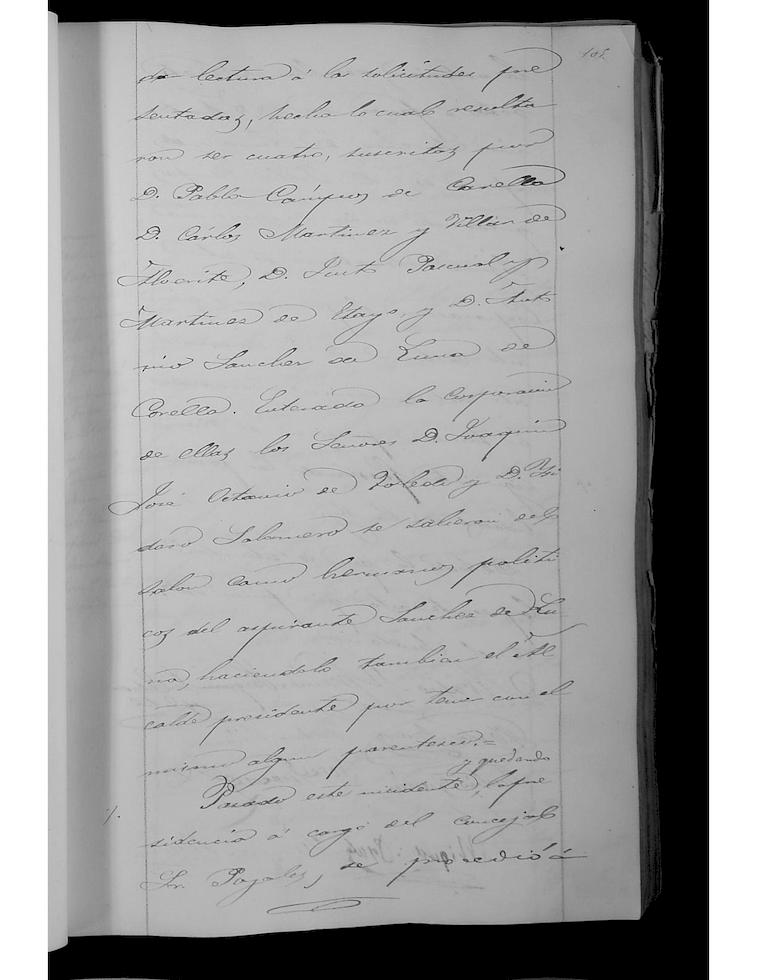 105.
dar lectura á la solicitudes pre
sentadas, hecho lo cual resulta
ron ser cuatro, suscritas por
D. Pablo Campos de Corella
D. Cárlos Martinez y Villar de
D. Justo Pascual y
Martinez de Etayo, y D. Anto
nio Sanchez de Luna de
Corella. Enterada la Corporacion
de ellas los Señores D. Joaquin
José Octavio de Toledo y D. Ysi
doro Salamero se salieron del
salon como hermanos politi
cos del aspirante Sanchez de Lu
na, haciendolo tambien el Al
calde presidente por tener con el
mismo algun parentesco.=
y quedando
Pasado este incidente, la pre
sidencia á cargo del Concejal
Sr. Pozales, se procedió á